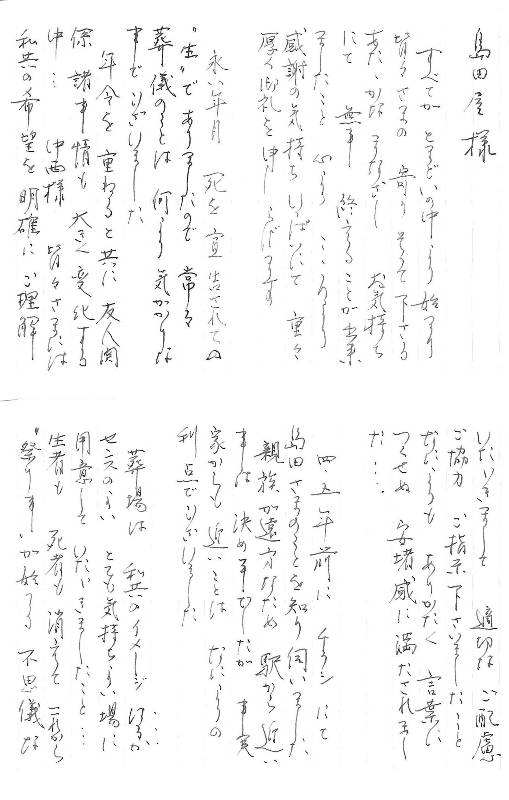 島田屋様
すべてが とまどいの中より始まり
皆々さまの 寄りそって下さる
あたゝかな まなざし お気持ち
にて 無事 終えることが出来
ましたこと 心より こころより
感謝の気持ち いっぱいにて 重々
厚く御礼を申し上げます
永い年月 死を宣告されての
“生”でありましたので 常々
葬儀のことは 何より 気がかりな
までございました
年令を 重ねると共に 友人関
係 諸事情も 大きく変化する
中… 中西様 皆々さまには
私共の希望を明確に ご理解
いただきまして 適切な ご配慮
ご協力 ご指示 下さいましたこと
なによりも ありがたく 言葉に
つくせぬ 安堵感に満たされまし
た….
四・五年前に チラシ にて
島田さまのことを知り 伺いました
親族が遠方なため 駅から近い
事は 決め手でしたが 事実
家からも 近いことは なによりの
利点でございました
葬場は 私共のイメージ はるか
センスのよい とても気持ちよい場に
用意して いただきましたこと…
生者も 死者も 消えて これから
“祭り事”が始まる 不思儀な